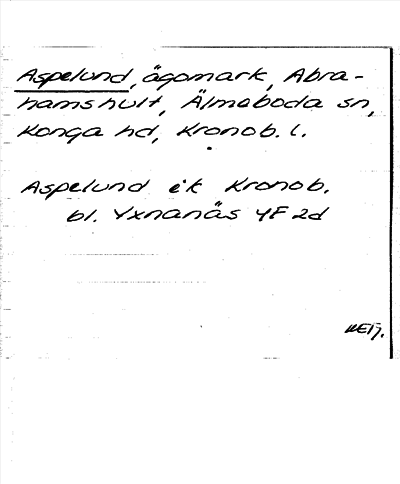 Aspelund, ägomark, Abra-
hamshult, Älmeboda sn,
Konga hd, Kronob. l.
Aspelund ek Kronob.
bl. Yxnanäs 4F 2d